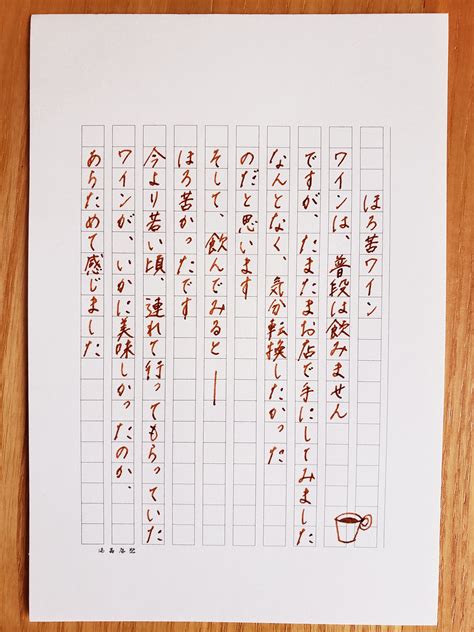 ほろ苦ワイン
ワインは、普段は飲みません
ですが、たまたまお店で手にしてみました
なんとなく、気分転換したかった
のだと思います
そして、飲んでみると――
ほろ苦かったです
今より若い頃、連れて行ってもらっていた
ワインが、いかに美味しかったのか、
あらためて感じました